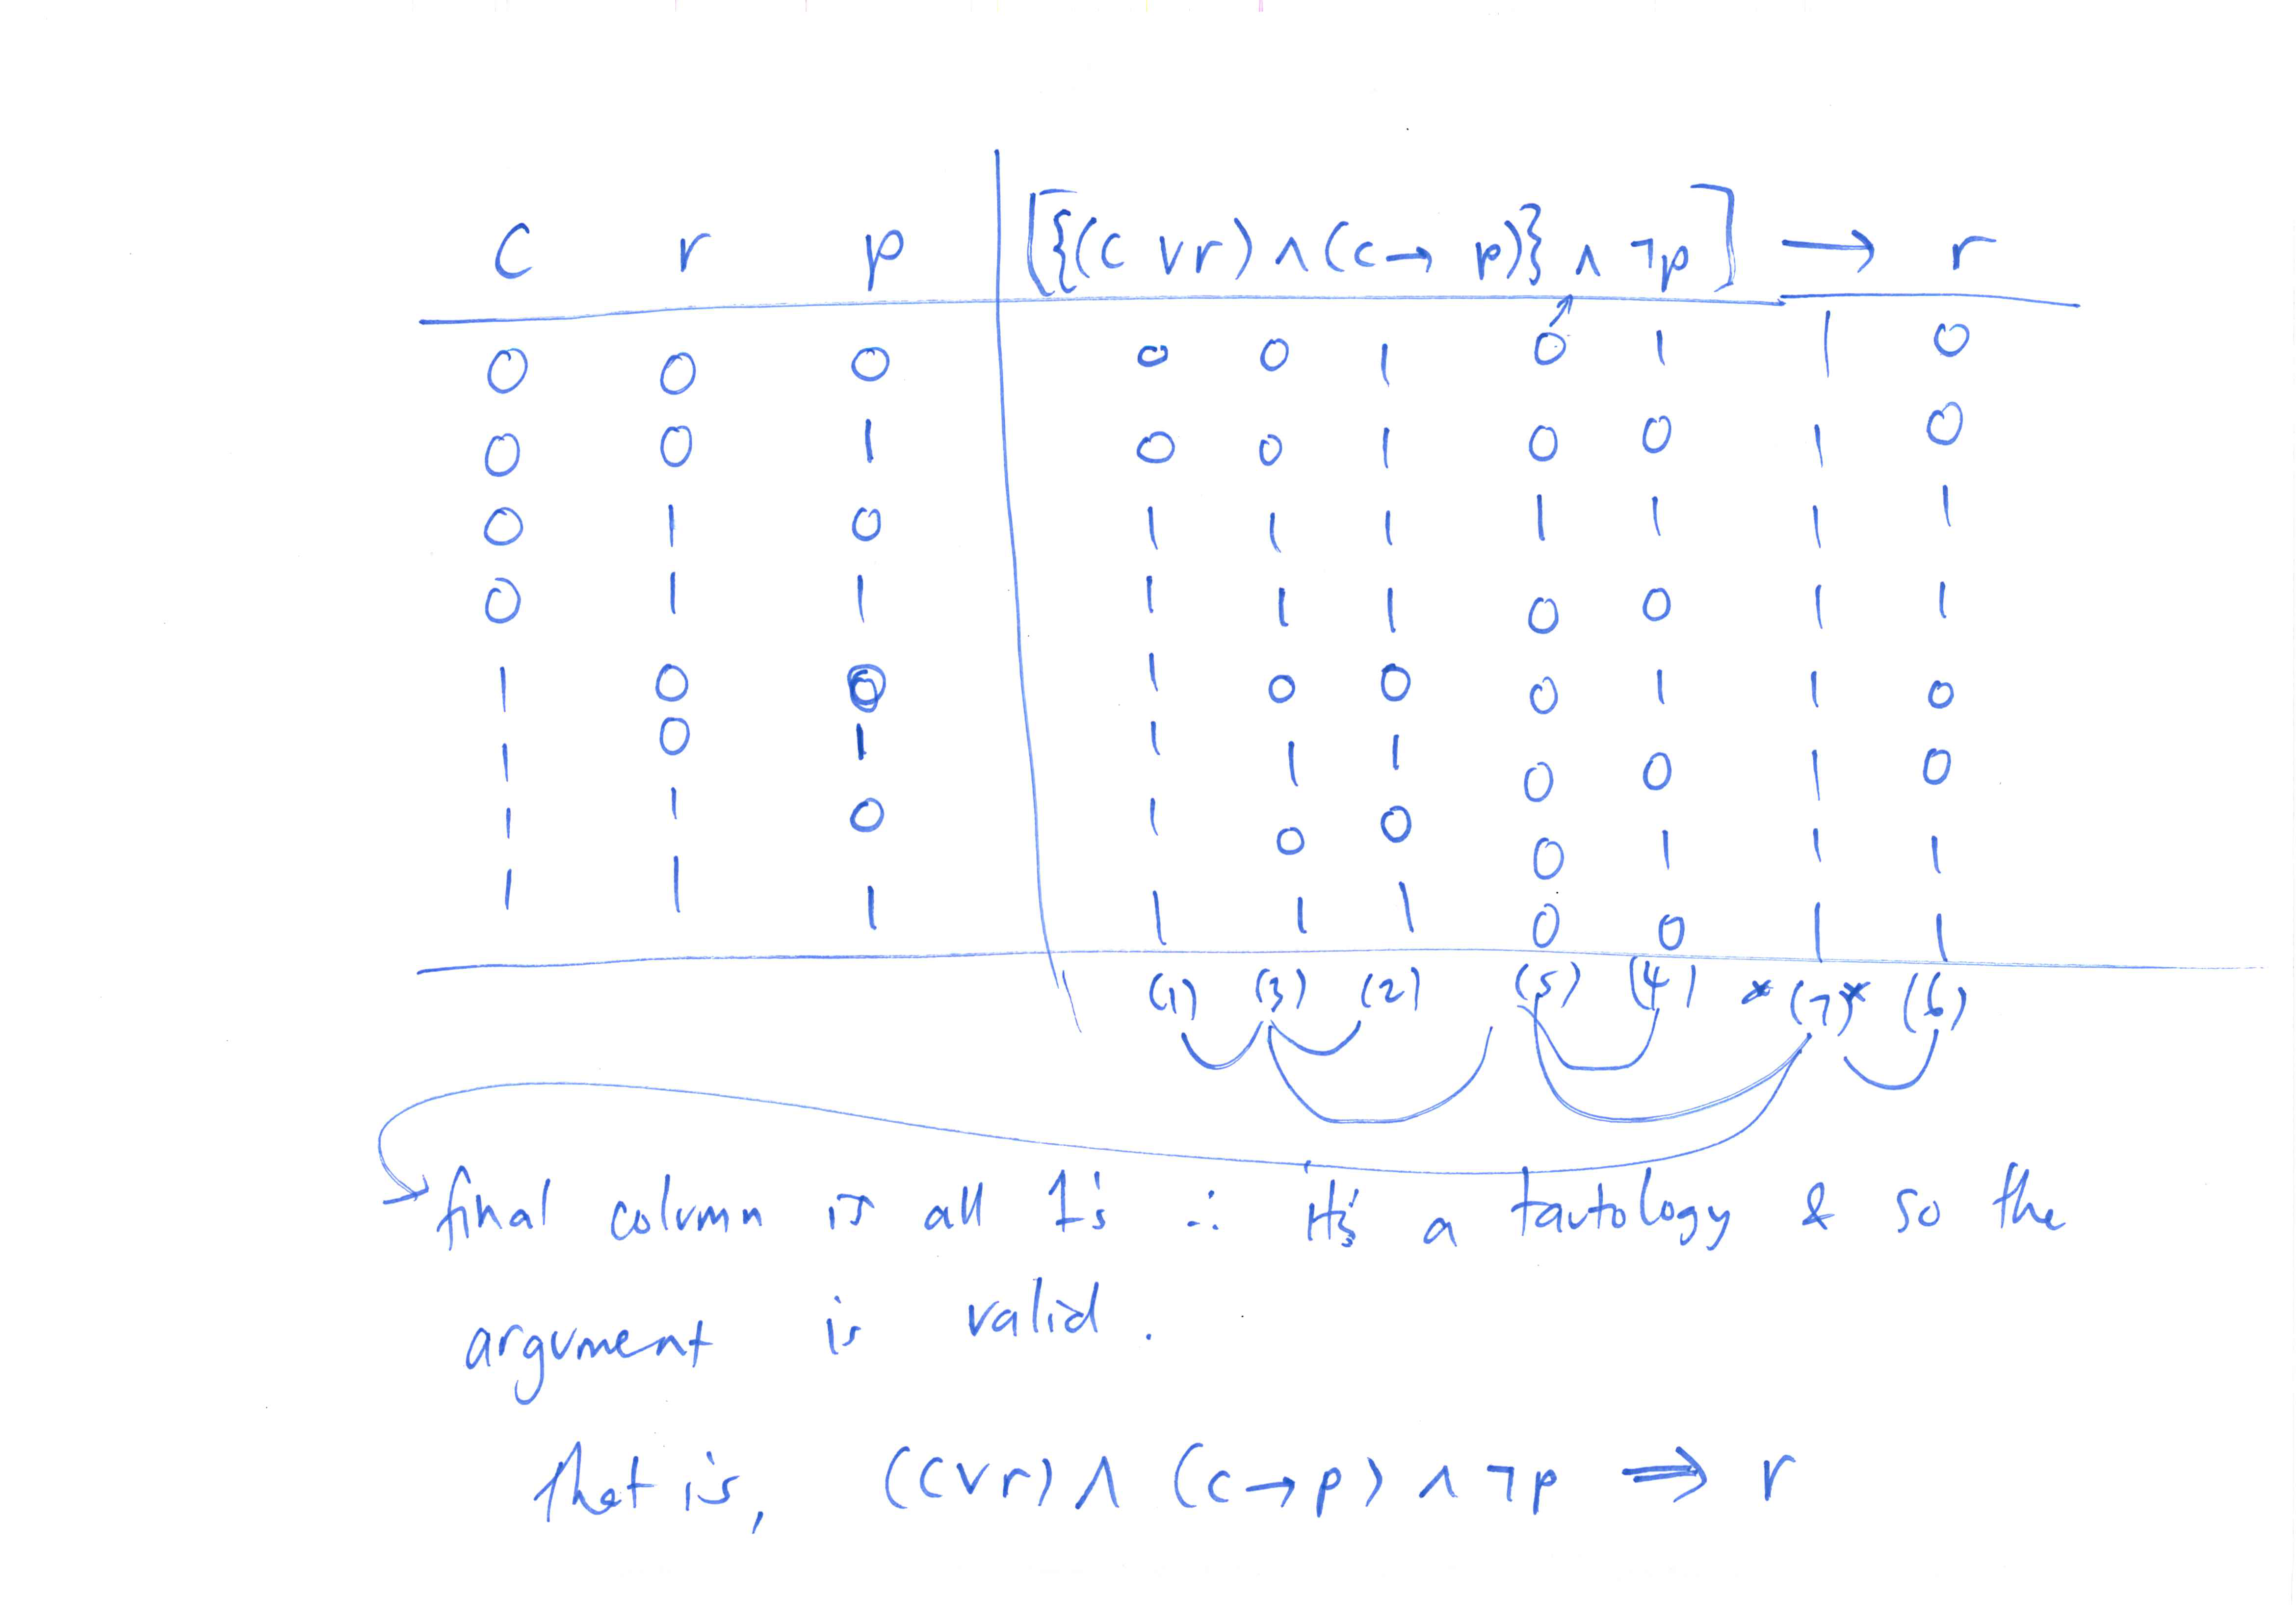 c r p [{(c ∨ r) ∧ (c → p)} ∧ ¬p] → r
0 0 0 0 0 1 0 1 1 0
0 0 1 0 0 1 0 0 1 0
0 1 0 1 1 1 1 1 1 1
0 1 1 1 1 1 0 0 1 1
1 0 0 1 0 0 0 1 1 0
1 0 1 1 1 1 0 0 1 0
1 1 0 1 0 0 0 1 1 1
1 1 1 1 1 1 0 0 1 1
(1) (3) (2) (5) (4) *(7)* (6)
→ final column is all 1's ∴ it's a tautology & so the
argument is valid.
that is, (c∨r) ∧ (c→p) ∧ ¬p ⇒ r